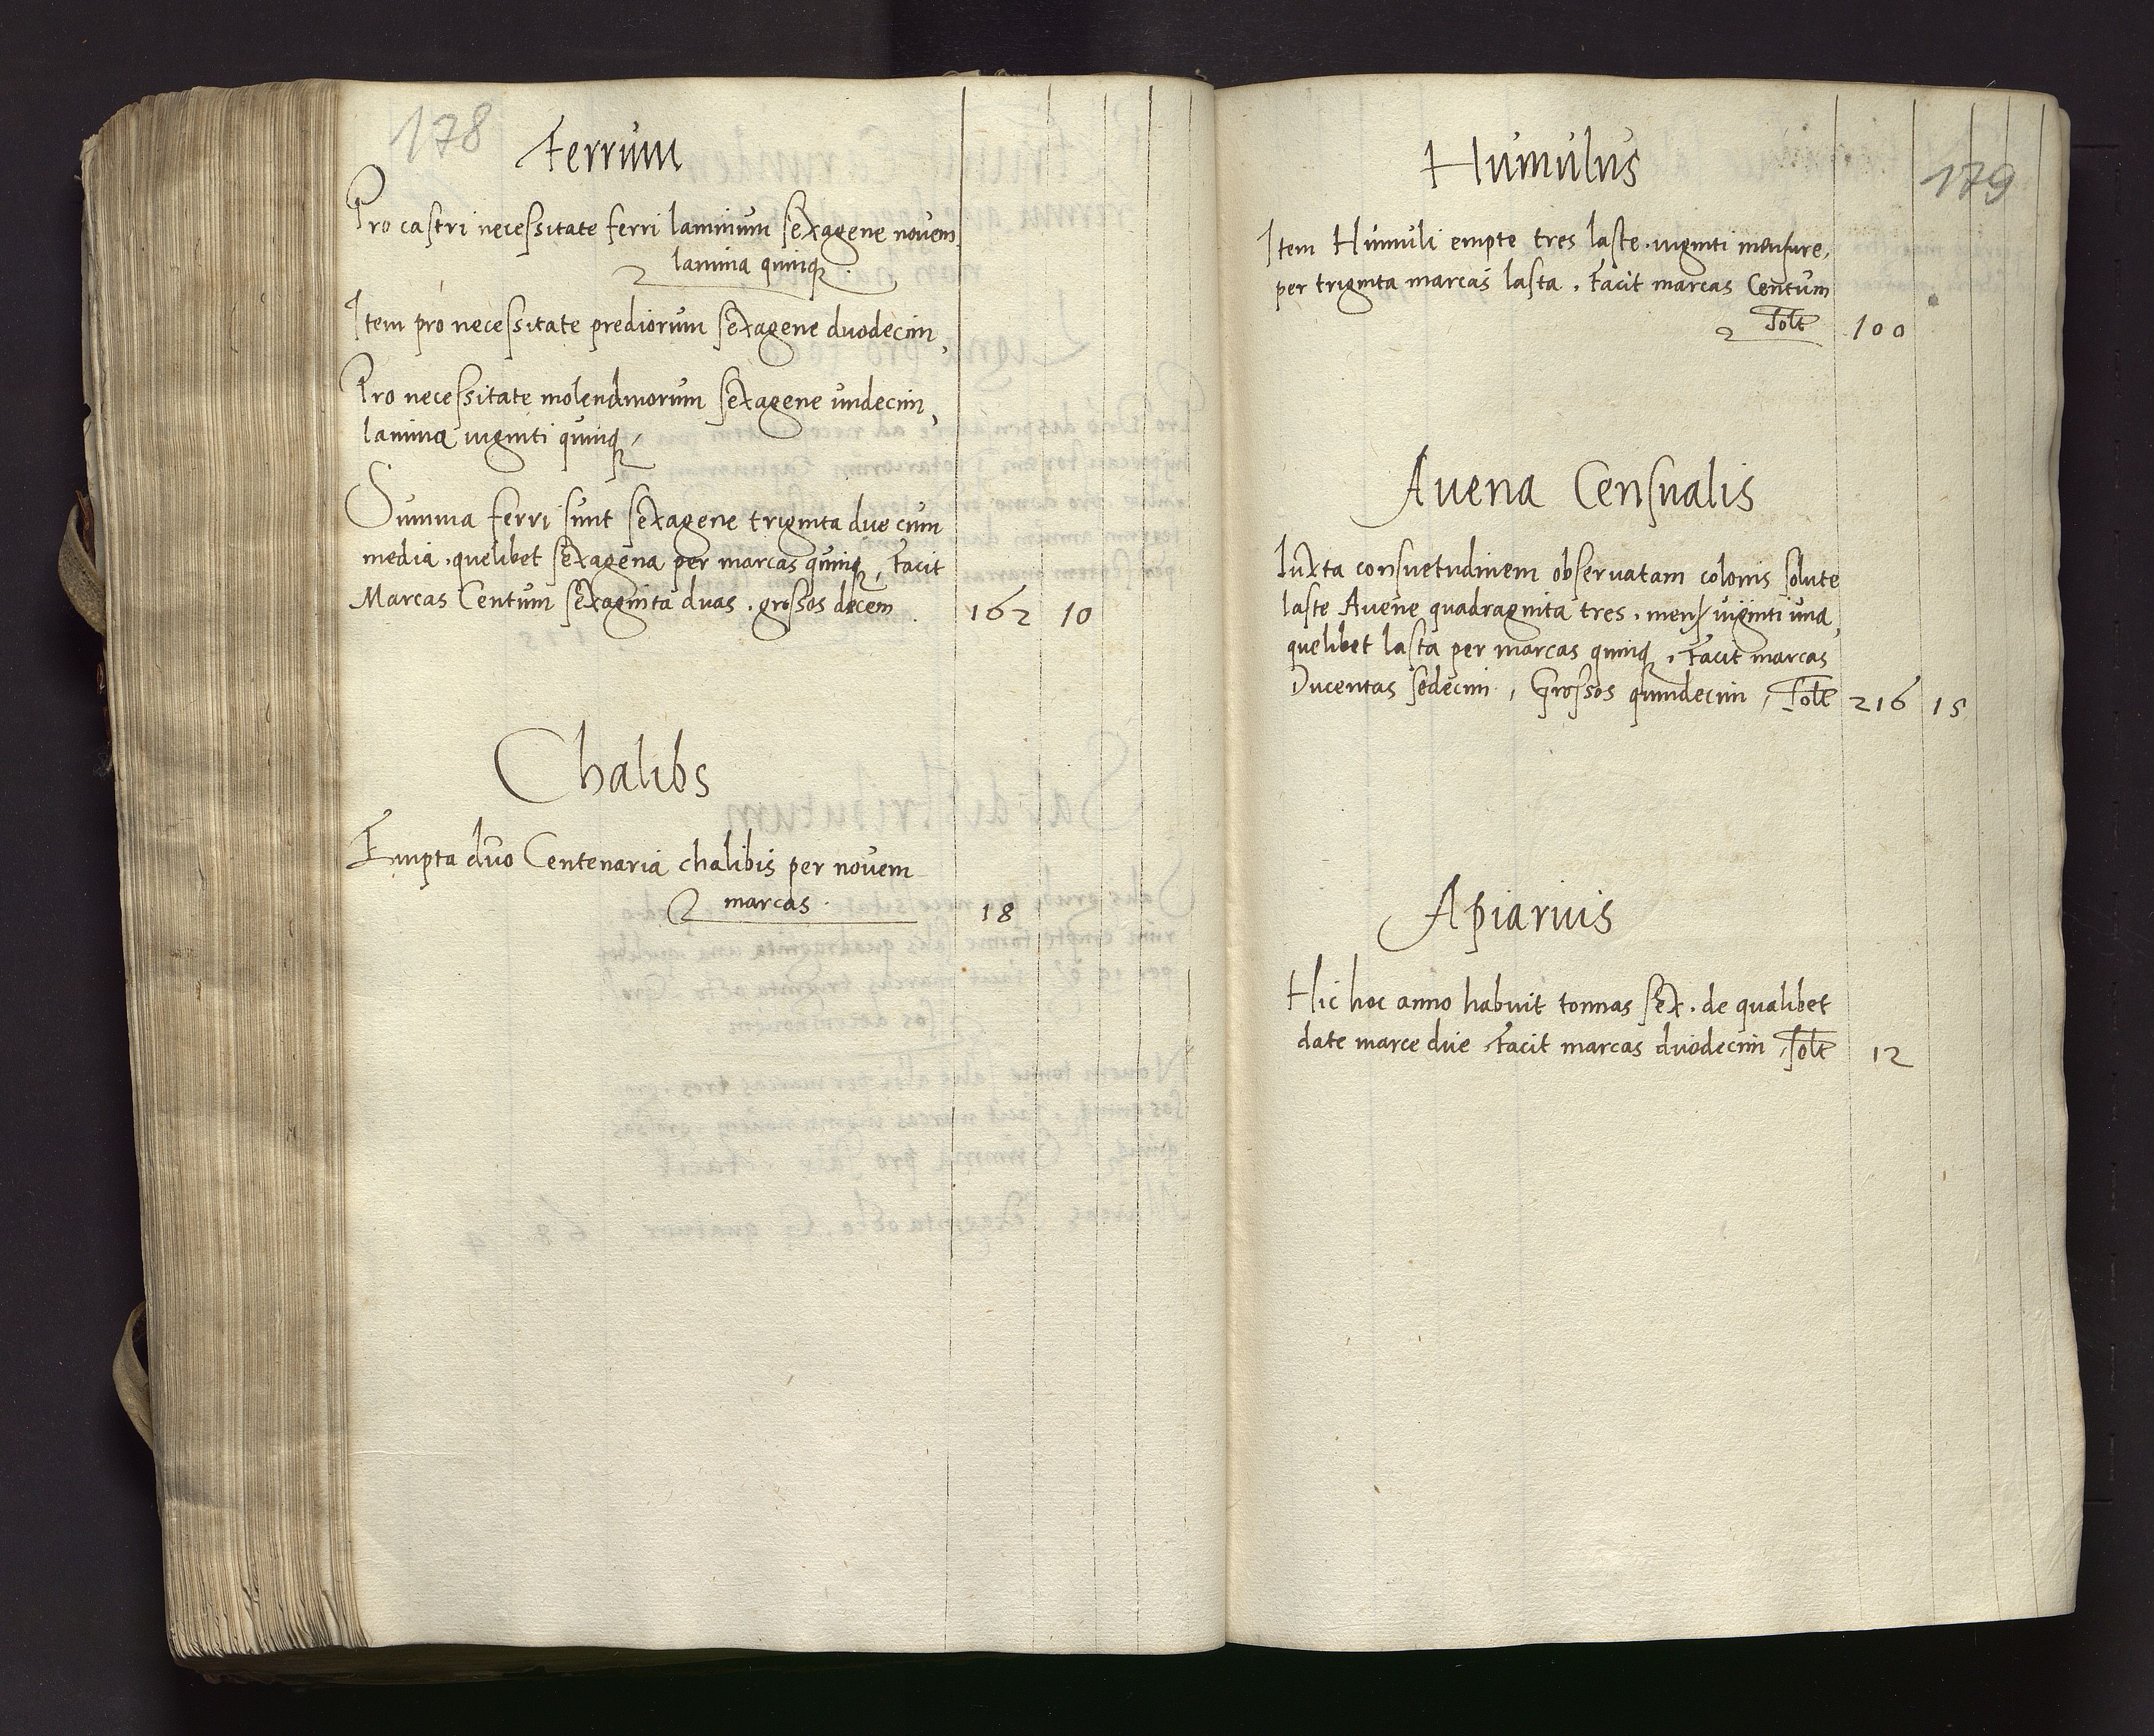 178
Ferrum
Pro castri necessitate ferri laminum sexagene novem
lamina quinq
Item pro necessitate prediorum sexagene duodecim,
Pro necessitate molendinorum sexagene undecim,
lamina viginti quinq
Summa ferri sunt sexagene triginta due cum
media, quelibet sexagena per marcas quinq, Facit
Marcas Centum sexaginta duas, grossos decem 162 10
Chalibs
Empta duo Centenaria chalibis per novem
marcas. 18
179
Humulus
Item Humuli empte tres laste, viginti mensure,
per triginta marcas lasta, Facit marcas Centum
Solt 100
Avena Censualis
Iuxta consuetudinem observatam colonis solute
laste Avene quadraginta tres, mens viginti una,
quelibet lasta per marcas quinq, Facit marcas
Ducentas sedecim, Grossos quindecim, Solt 216 15
Apiarius
Hic hoc anno habuit tonnas sex, de qualibet
date marce due, Facit marcas duodecim, Solt 12